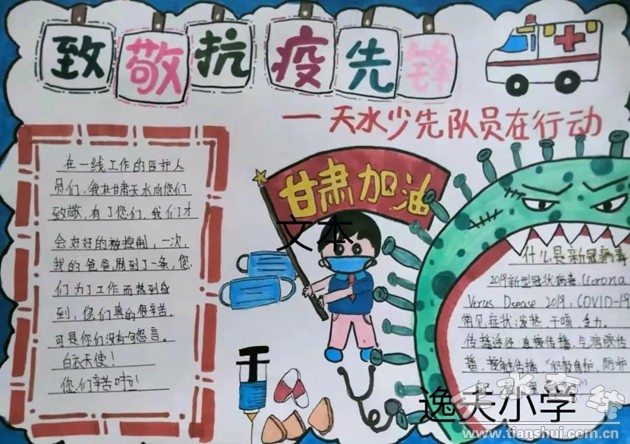 致敬抗疫先锋
一天水少先队员在行动
在一线工作的医护人
员们，我在甘肃天水向您们
致敬，有了您们，我们才
会好好的被控制，一次，
我的爸爸刷到了一条，您
们为了工作而
到，您们真的很辛苦，
可是你们没有句怨言。
白衣天使！
您们辛苦啦！
甘肃加油
文本
什么是新冠病毒
2019新型冠状病毒，Corona
Virus Dsease 2019，COVID-19
常见症状：发热、干咳、乏力。
传播途径：直接传播、气溶胶传
播、接触传播
逸夫小学
www.tianshui.com.cn